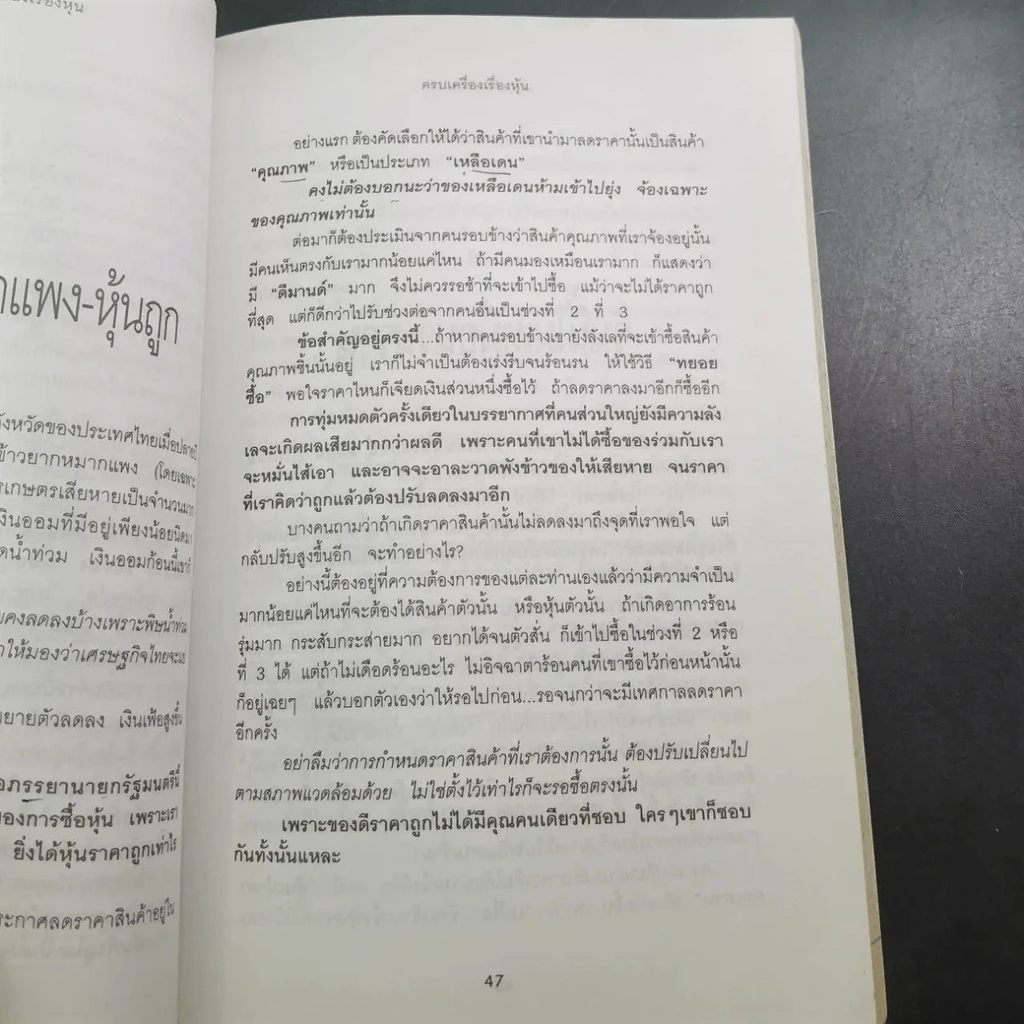 แพง-หุ้นถูก
จังหวัดของประเทศไทยเมื่อปลายปี
ข้าวยากหมากแพง (โดยเฉพาะ
เกษตรเสียหายเป็นจำนวนมาก
เงินออมที่มีอยู่เพียงน้อยนิดมา
น้ำท่วม เงินออมก้อนนี้เขาก็
คงลดลงบ้างเพราะพิษน้ำท่วม
ให้มองว่าเศรษฐกิจไทยจะแย่
ขยายตัวลดลง เงินเฟ้อสูงขึ้น
ภรรยานายกรัฐมนตรีนี่
ของการซื้อหุ้น เพราะเรา
ยิ่งได้หุ้นราคาถูกเท่าไร
ประกาศลดราคาสินค้าอยู่ใน
ครบเครื่องเรื่องหุ้น
อย่างแรก ต้องคัดเลือกให้ได้ว่าสินค้าที่เขานำมาลดราคานั้นเป็นสินค้า
“คุณภาพ” หรือเป็นประเภท “เหลือเดน”
คงไม่ต้องบอกนะว่าของเหลือเดนห้ามเข้าไปยุ่ง จ้องเฉพาะ
ของคุณภาพเท่านั้น
ต่อมาก็ต้องประเมินจากคนรอบข้างว่าสินค้าคุณภาพที่เราจ้องอยู่นั้น
มีคนเห็นตรงกับเรามากน้อยแค่ไหน ถ้ามีคนมองเหมือนเรามาก ก็แสดงว่า
มี “ดีมานด์” มาก จึงไม่ควรรอช้าที่จะเข้าไปซื้อ แม้ว่าจะไม่ได้ราคาถูก
ที่สุด แต่ก็ดีกว่าไปรับช่วงต่อจากคนอื่นเป็นช่วงที่ 2 ที่ 3
ข้อสำคัญอยู่ตรงนี้...ถ้าหากคนรอบข้างเขายังลังเลที่จะเข้าซื้อสินค้า
คุณภาพชิ้นนั้นอยู่ เราก็ไม่จำเป็นต้องเร่งรีบจนร้อนรน ให้ใช้วิธี “ทยอย
ซื้อ” พอใจราคาไหนก็เจียดเงินส่วนหนึ่งซื้อไว้ ถ้าลดราคาลงมาอีกก็ซื้ออีก
การทุ่มหมดตัวครั้งเดียวในบรรยากาศที่คนส่วนใหญ่ยังมีความลัง
เลจะเกิดผลเสียมากกว่าผลดี เพราะคนที่เขาไม่ได้ซื้อของร่วมกับเรา
จะหมั่นไส้เอา และอาจจะอาละวาดพังข้าวของให้เสียหาย จนราคา
ที่เราคิดว่าถูกแล้วต้องปรับลดลงมาอีก
บางคนถามว่าถ้าเกิดราคาสินค้านั้นไม่ลดลงมาถึงจุดที่เราพอใจ แต่
กลับปรับสูงขึ้นอีก จะทำอย่างไร?
อย่างนี้ต้องอยู่ที่ความต้องการของแต่ละท่านเองแล้วว่ามีความจำเป็น
มากน้อยแค่ไหนที่จะต้องได้สินค้าตัวนั้น หรือหุ้นตัวนั้น ถ้าเกิดอาการร้อน
รุ่มมาก กระสับกระส่ายมาก อยากได้จนตัวสั่น ก็เข้าไปซื้อในช่วงที่ 2 หรือ
ที่ 3 ได้ แต่ถ้าไม่เดือดร้อนอะไร ไม่อิจฉาตาร้อนคนที่เขาซื้อไว้ก่อนหน้านั้น
ก็อยู่เฉยๆ แล้วบอกตัวเองว่าให้รอไปก่อน...รอจนกว่าจะมีเทศกาลลดราคา
อีกครั้ง
อย่าลืมว่าการกำหนดราคาสินค้าที่เราต้องการนั้น ต้องปรับเปลี่ยนไป
ตามสภาพแวดล้อมด้วย ไม่ใช่ตั้งไว้เท่าไรก็จะรอซื้อตรงนั้น
เพราะของดีราคาถูกไม่ได้มีคุณคนเดียวที่ชอบ ใครๆเขาก็ชอบ
กันทั้งนั้นแหละ
47